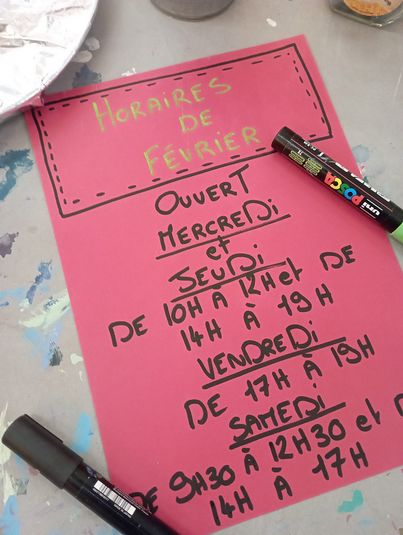 HORAIRES
DE
FÉVRIER
OUVERT
MERCREDI
et
JEUDI
DE 10H À 12H et DE
14H À 19H
VENDREDI
DE 17H À 19H
SAMEDI
DE 9H30 À 12H30 et D
14H À 17H
POSCA
uni